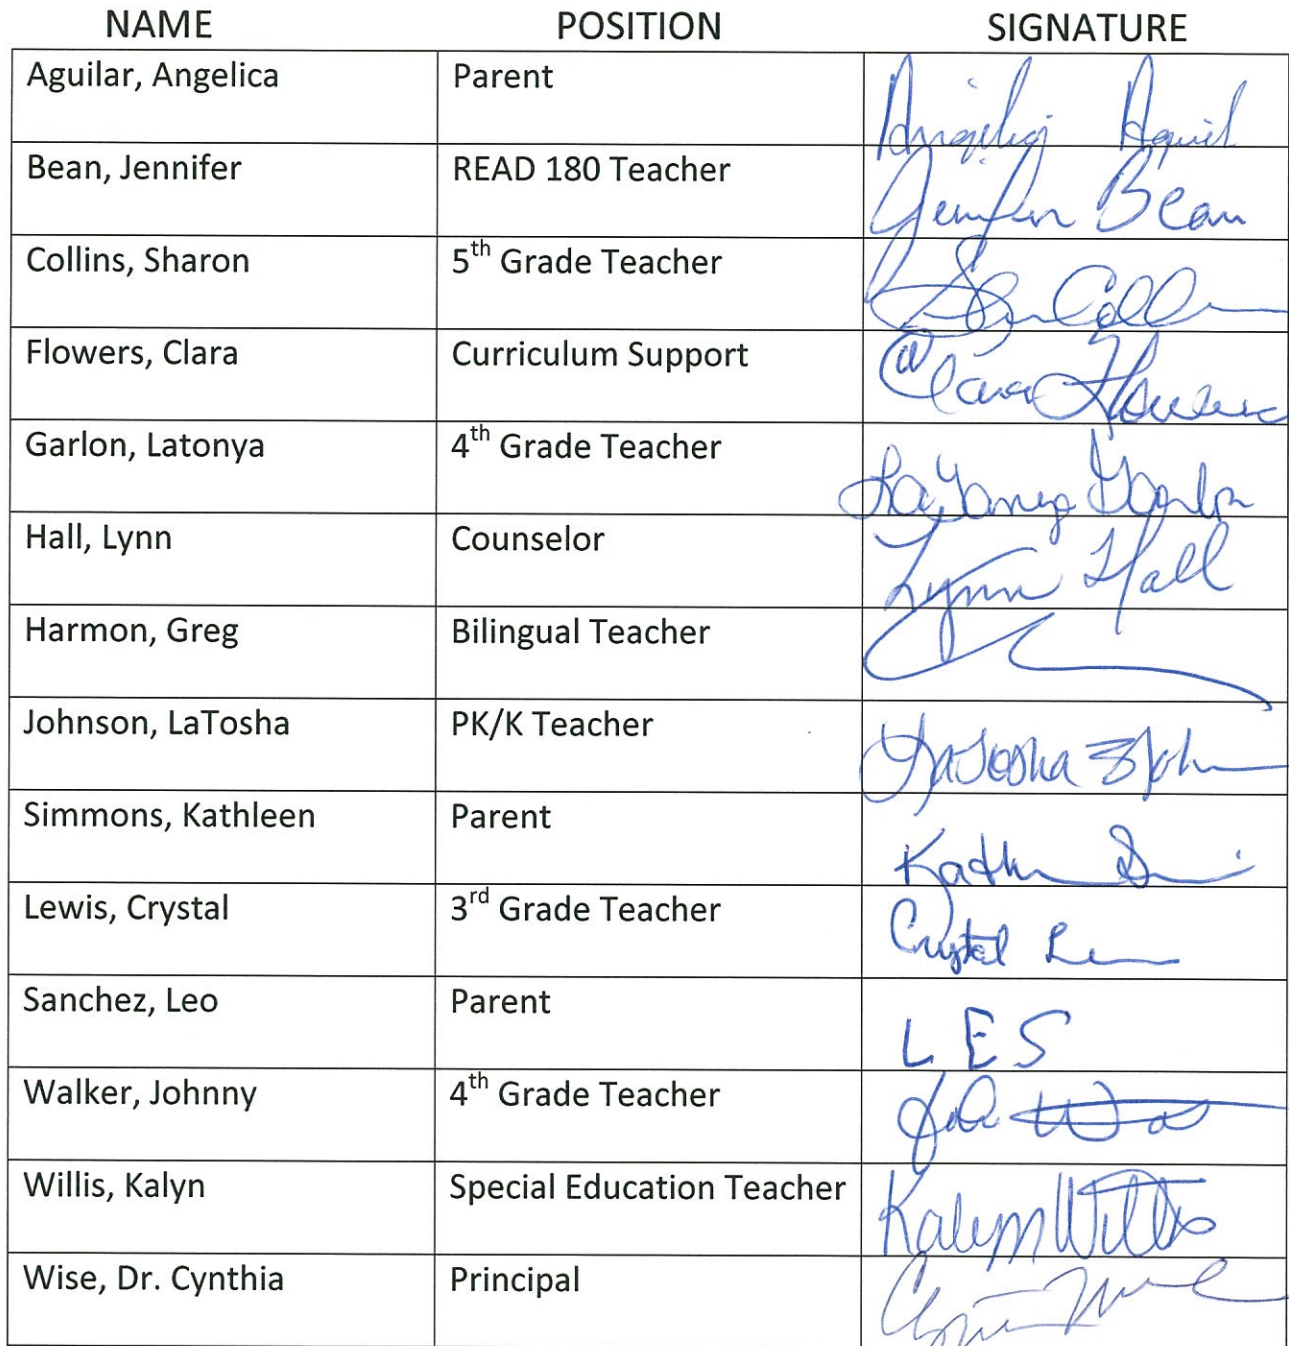 NAME POSITION SIGNATURE
Aguilar, Angelica Parent Angelica Aguil
Bean, Jennifer READ 180 Teacher Jennifer Bean
Collins, Sharon 5th Grade Teacher
Flowers, Clara Curriculum Support Clara Flowers
Garlon, Latonya 4th Grade Teacher LaTonya Garlon
Hall, Lynn Counselor Lynn Hall
Harmon, Greg Bilingual Teacher
Johnson, LaTosha PK/K Teacher LaTosha
Simmons, Kathleen Parent
Lewis, Crystal 3rd Grade Teacher Crystal
Sanchez, Leo Parent L E S
Walker, Johnny 4th Grade Teacher
Willis, Kalyn Special Education Teacher Kalyn Willis
Wise, Dr. Cynthia Principal